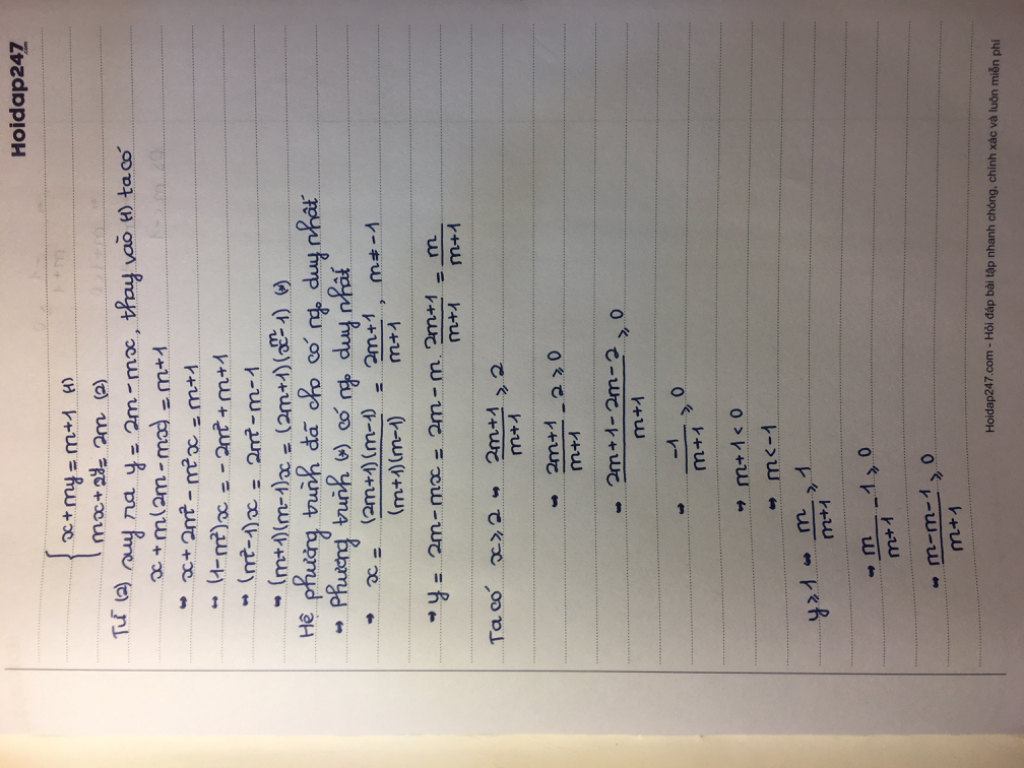 Hoidap247
x + my = m+1 (1)
mx + 2y = 2m (2)
Từ (2) suy ra y = 2m - mx, thay vào (1) ta có
x + m(2m - mx) = m+1
⇔ x + 2m² - m²x = m+1
⇔ (1-m²)x = -2m² + m+1
⇔ (m²-1)x = 2m² - m - 1
⇔ (m+1)(m-1)x = (2m+1)(m-1) (*)
Hệ phương trình đã cho có ng duy nhất
⇔ Phương trình (*) có ng duy nhất
⇒ x = (2m+1)(m-1)/(m+1)(m-1) = 2m+1/m+1, m ≠ -1
⇒ y = 2m - mx = 2m - m. 2m+1/m+1 = m/m+1
Ta có x ≥ 2 ⇔ 2m+1/m+1 ≥ 2
⇔ 2m+1/m+1 - 2 ≥ 0
⇔ 2m+1-2m-2/m+1 ≥ 0
⇔ -1/m+1 ≥ 0
⇔ m+1 < 0
⇔ m < -1
y ≥ 1 ⇔ m/m+1 ≥ 1
⇔ m/m+1 - 1 ≥ 0
⇔ m-m-1/m+1 ≥ 0
Hoidap247.com - Hỏi đáp bài tập nhanh chóng, chính xác và luôn miễn phí